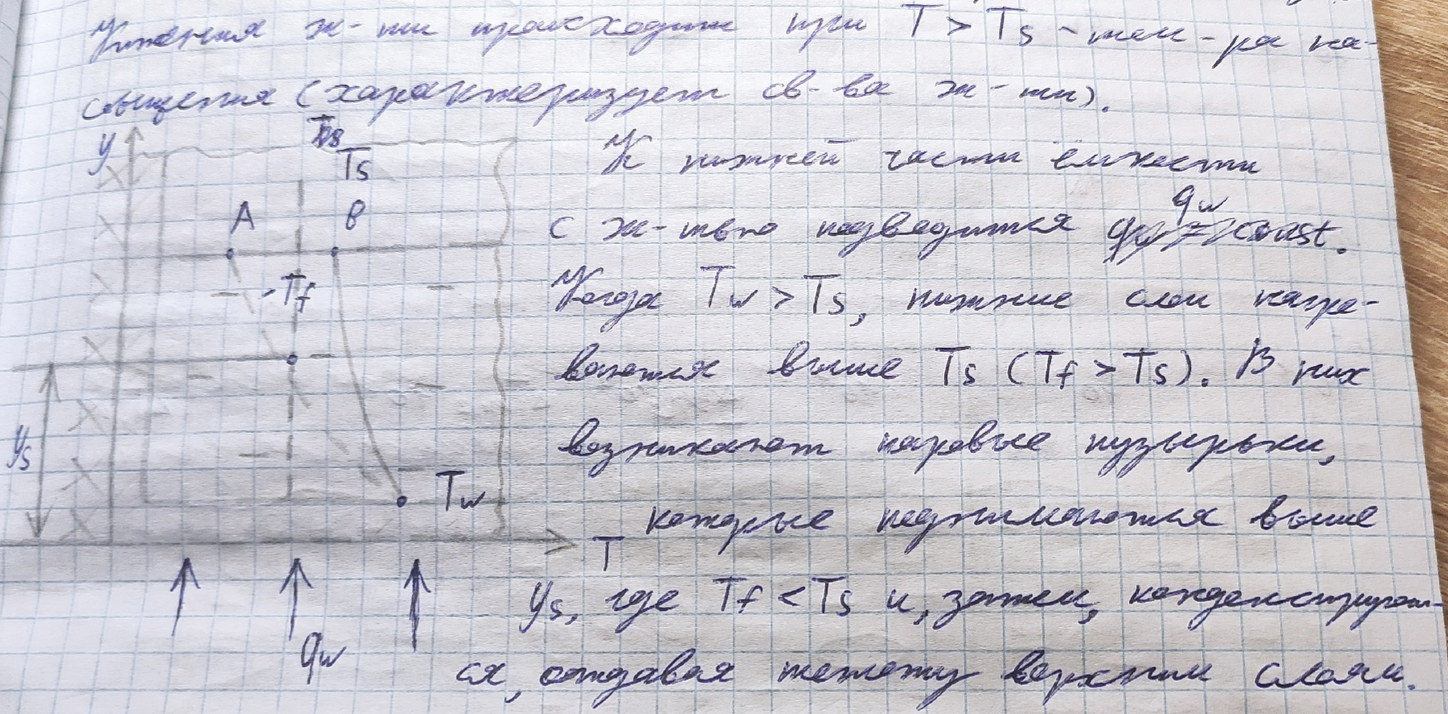 Кипения ж-ти происходит при T > Ts - тем-ра на-
сыщения (характеризует св-ва ж-ти).
y
Ts
К нижней части ёмкости
A B
qw
с ж-тью подводится const.
Tf
Когда Tw > Ts, нижние слои нагре-
ваются выше Ts (Tf > Ts). В них
ys
возникают паровые пузырьки,
Tw
которые поднимаются выше
T
ys, где Tf < Ts и, затем, конденсируют-
qw
ся, отдавая теплоту верхним слоям.